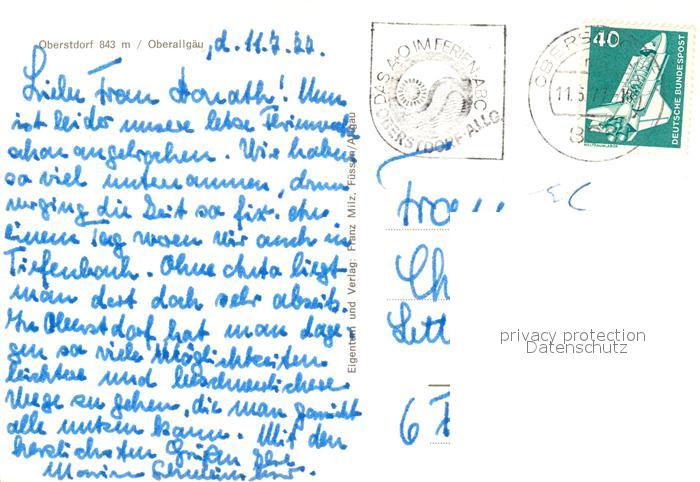 Oberstdorf 843 m / Oberallgäu
, d. 11.7.77.
Liebe Frau Horvath! Nun
ist leider unsere letzte Ferienwoche
schon angebrochen. Wir haben
so viel unternommen, drum
verging die Zeit so fix. An
einem Tag waren wir auch in
Tiefenbach. Ohne Auto liegt
man dort doch sehr abseits.
In Oberstdorf hat man dage-
gen so viele Möglichkeiten
leichtere und beschwerlichere
Wege zu gehen, die man
alle nutzen kann. Mit den
herzlichsten Grüßen Ihre
Eigentum und Verlag: Franz Milz, Füssen/Allgäu
DAS A-O IM FERIEN-ABC
OBERSTDORF-ALLG.
OBERS
11.
40
DEUTSCHE BUNDESPOST
WELTRAUMLABOR
Fra
Ch
Sett
6
privacy protection
Datenschutz